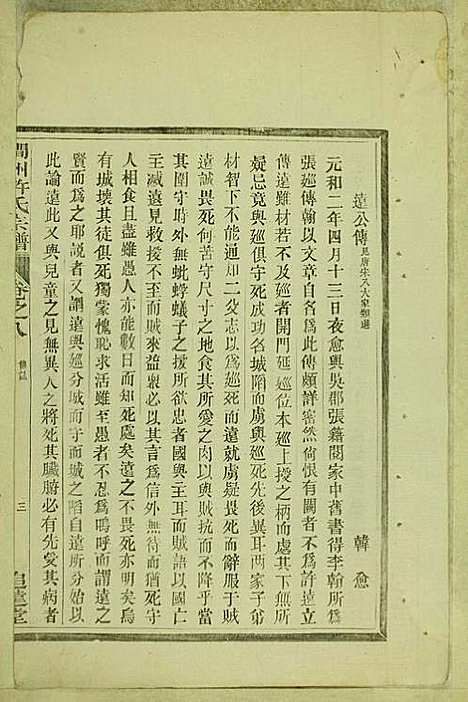 遠公傳見唐宋八大家類選
韓愈
元和二年四月十三日夜愈與吳郡張籍閱家中舊書得李翰所爲
張巡傳翰以文章自名爲此傳頗詳密然尙恨有闕者不爲許遠立
傳遠雖材若不及巡者開門延巡位本巡上授之柄而處其下無所
疑忌竟與巡俱守死成功名城陷而虜與巡死先後異耳兩家子弟
材智下不能通知二父志以爲巡死而遠就虜疑畏死而辭服于賊
遠誠畏死何苦守尺寸之地食其所愛之肉以與賊抗而不降乎當
其圍守時外無蚍蜉蟻子之援所欲忠者國與主耳而賊語以國亡
主滅遠見救援不至而賊來益衆必以其言爲信外無待而猶死守
人人相食且盡雖愚人亦能數日而知死處矣遠之不畏死亦明矣烏
有城壞其徒俱死獨蒙愧恥求活雖至愚者不忍爲嗚呼而謂遠之
賢而爲之耶說者又謂遠與巡分城而守城之陷自遠所分始以
此詬遠此又與兒童之見無異人之將死其臟腑必有先受其病者
潤州許氏宗譜
卷之八
傳誌
三
追遠堂